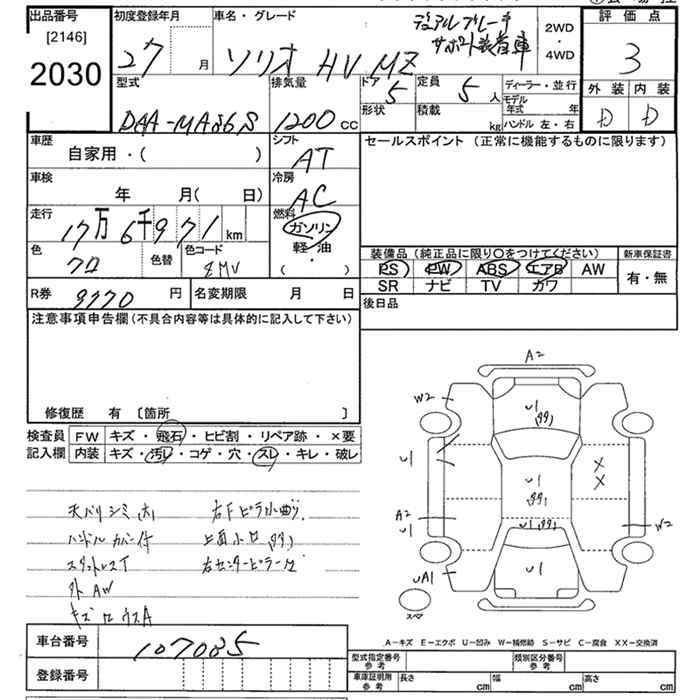 出品番号
[2146]
2030
初度登録年月
27 月
車名・グレード
ソリオ HV MZ
デュアルブレーキ
サポート装着車
2WD
・
4WD
評価点
3
外装 内装
D D
型式
DAA-MA36S
排気量
1200 cc
ドア
5
形状
定員
5 人
積載
kg
ディーラー・並行
モデル
年式 年
ハンドル 左・右
車歴
自家用・( )
シフト
AT
セールスポイント (正常に機能するものに限ります)
車検
年 月( 日)
冷房
AC
走行
17万6千971 km
燃料
ガソリン
軽・油
・
( )
色
クロ
色替
色コード
ZMV
装備品 (純正品に限り○をつけてください)
PS PW ABS エアB AW
SR ナビ TV カワ
新車保証書
有・無
R券
9770 円
名変期限 月 日
後日品
注意事項申告欄 (不具合内容等は具体的に記入して下さい)
修復歴 有 〔箇所 〕
検査員
記入欄
FW キズ・飛石・ヒビ割・リペア跡・×要
内装 キズ・汚レ・コゲ・穴・スレ・キレ・破レ
天バリシミ(大) 右Fピラ小曲り
ハンドルカバー付
スタットレスT 右センターピラー
外AW
A2
W2
U1
U1
U1
U1
U1
U1
A2
U1
UA1
W2
××
スペア
車台番号
107085
登録番号
A-キズ E-エクボ U-凹み W-補修跡 S-サビ C-腐食 XX-交換済
型式指定番号
参考
類別区分番号
参考
車庫証明用
参考
長さ cm
幅 cm
高さ cm